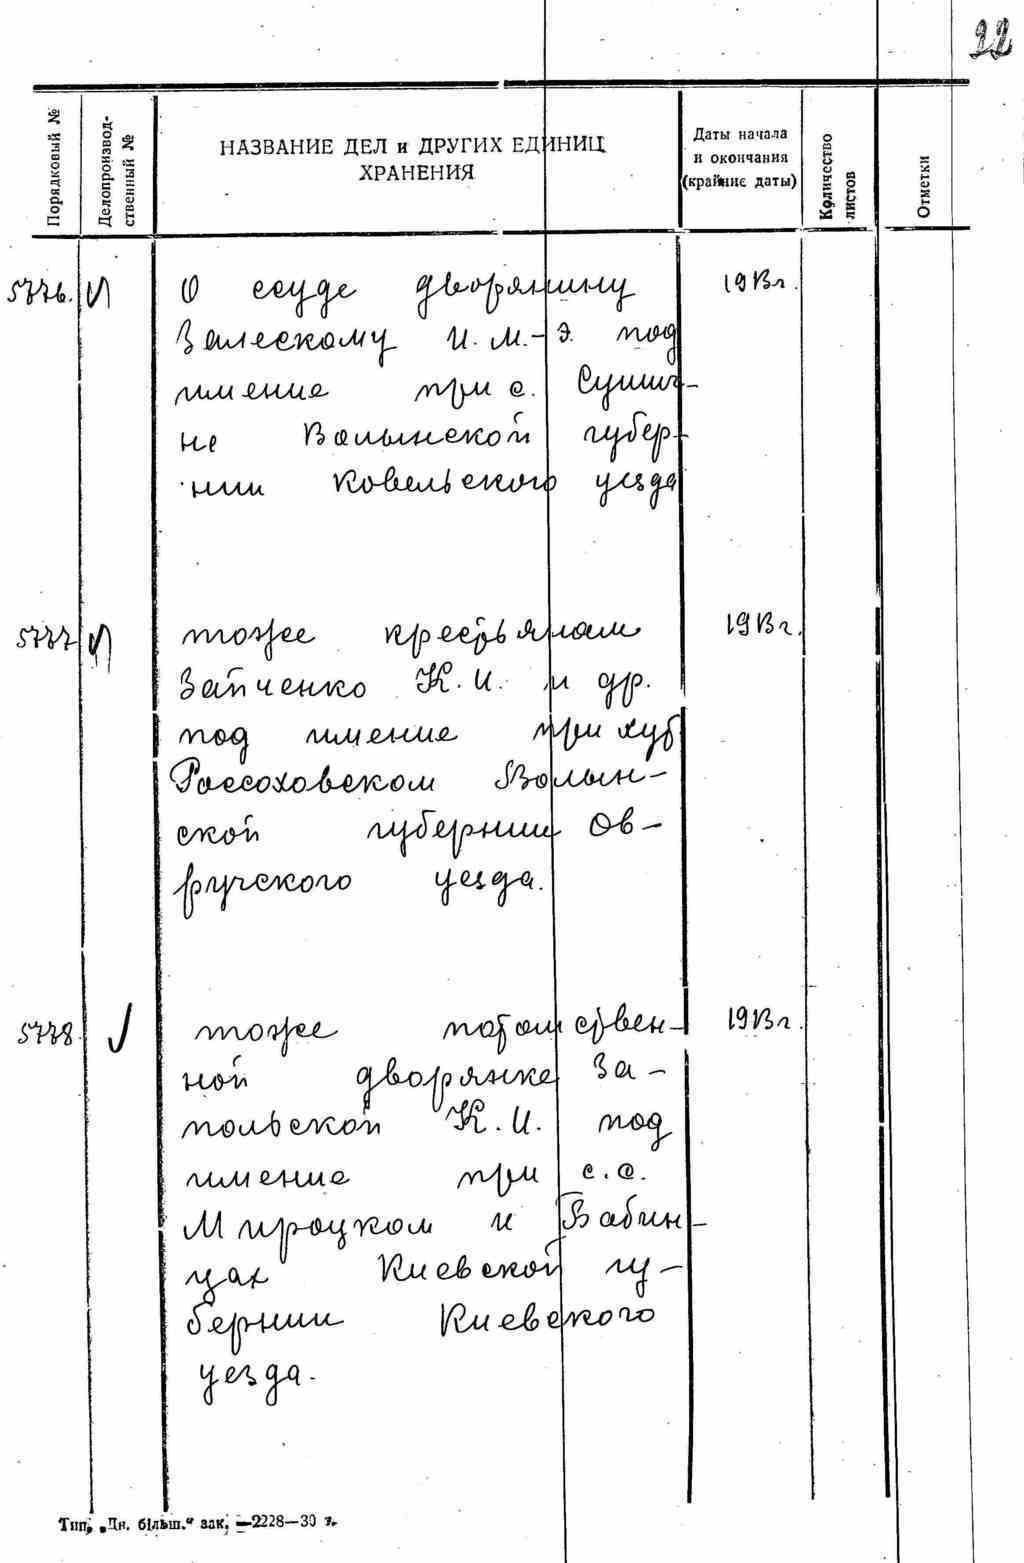 22
Порядковый №
Делопроизвод-
ственный №
НАЗВАНИЕ ДЕЛ и ДРУГИХ ЕДИНИЦ
ХРАНЕНИЯ
Даты начала
и окончания
(крайние даты)
Количество
листов
Отметки
5776. О ссуде дворянину 1913 г.
Залескому И. М.-Э. под
имение при с. Сушич-
не Волынской губер-
нии Ковельского уезда
5777 тоже крестьянам 1913 г.
Зайченко К. И. и др.
под имение при хут
Россоховском Волын-
ской губернии Ов-
ручского уезда.
5778. тоже потомствен- 1913 г.
ной дворянке За-
польской К. И. под
имение при с.с.
Мироцком и Бабин-
цах Киевской гу-
бернии Киевского
уезда.
Тип. „Дн. більш.“ зак. —2228—30 г.